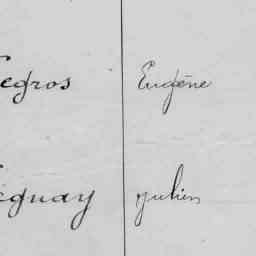 Legros Eugène
Léguay Julien